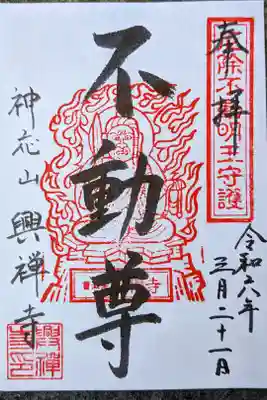 奉拝
不動尊
令和六年
三月二十一日
神応山 興禅寺